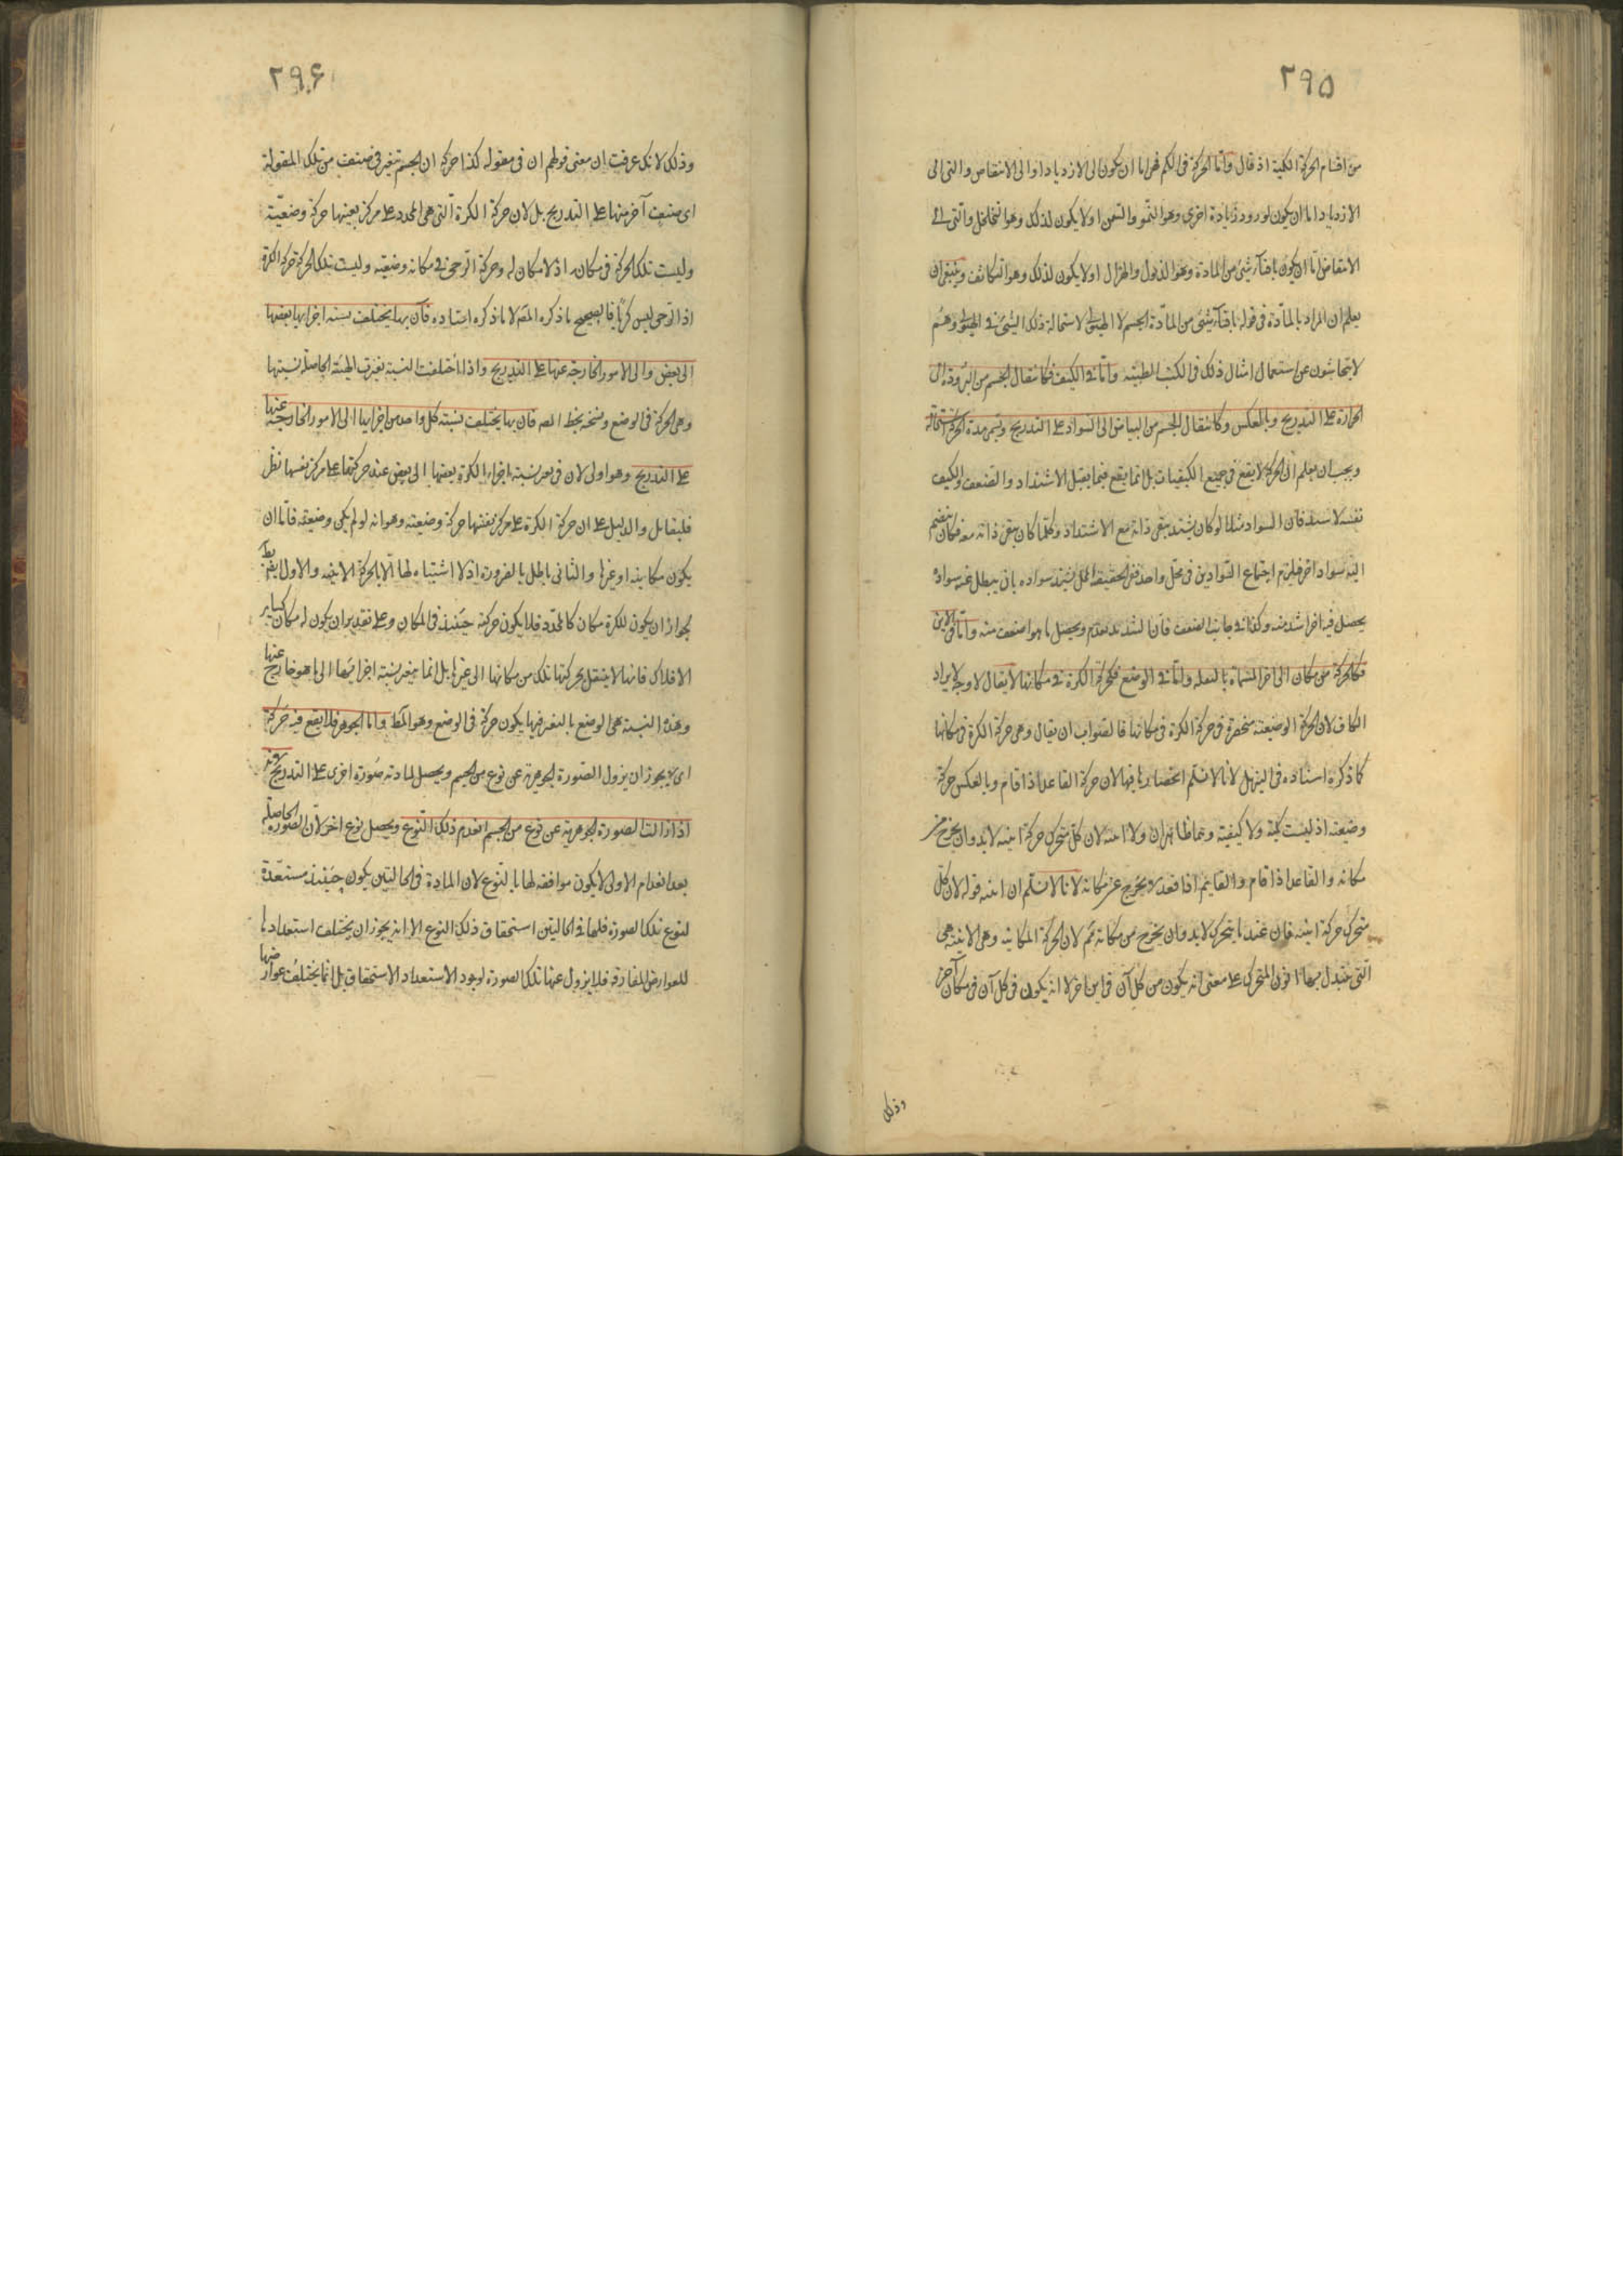 ٢٩٥
من اقسام الحركة الكمية اذ قال واما الحركة فى الكم فهى اما ان تكون الى الازدياد او الى الانتقاص والتى الى
الازدياد اما ان يكون لورود زيادة اخرى وهو النمو والسمن او لا يكون لذلك وهو التخلخل والتى الى
الانتقاص اما ان يكون بافناء شئ من المادة وهو الذبول والهزال او لا يكون لذلك وهو التكاثف وينبغى ان
يعلم ان المراد بالمادة فى قوله بافناء شئ من المادة الجسم لا الهيولى لاستحالة ذلك الشئ فى الهيولى وهم
لا يتحاشون عن استعمال امثال ذلك فى الكتب الطبية واما فى الكيف فكانتقال الجسم من البرودة الى
الحرارة على التدريج وبالعكس وكانتقال الجسم من البياض الى السواد على التدريج ويسمى هذه الحركة استحالة
ويجب ان يعلم ان الحركة لا يقع فى جميع الكيفيات بل انما يقع فيما يقبل الاشتداد والضعف والكيف
نفسه لا يشتد فان السواد مثلا لو كان يشتد يبقى ذاته مع الاشتداد وكلما كان يبقى ذاته معه فكان ينضم
اليه سواد اخر فيلزم اجتماع السوادين فى محل واحد ففى الحقيقة المحل يشتد سواده بان يبطل عنه سواده
يحصل فيه اخر اشد منه وكذا فى جانب الضعف فان الشديد ينعدم ويحصل ما هو اضعف منه واما فى الاين
فكالحركة من مكان الى اخر المسماة بالنقلة واما فى الوضع فكحركة الكرة فى مكانها لا يقال لا وجه لايراد
الكاف لان الحركة الوضعية منحصرة فى حركة الكرة فى مكانها فالصواب ان يقال وهى حركة الكرة فى مكانها
كما ذكره استاده فى التنزيل لانا لا نسلم انحصارها فيها لان حركة القاعد اذا قام وبالعكس حركة
وضعية اذ ليست كمية ولا كيفية وهما ظاهران ولا اينية لان كل متحرك حركة اينية لابد وان يخرج من
مكانه والقاعد اذا قام والقايم اذا قعد لا يخرج عن مكانه لانا لا نسلم ان اينية قوله لان كل
متحرك حركة اينية فان عند ما يتحرك لابد وان يخرج من مكانه ثم لان الحركة المكانية وهى الاينية هى
التى يتبدل بها اين المتحرك على معنى انه يكون من كل آن فى اين اخر لا انه يكون فى كل آن فى مكان آخر
وذلك
٢٩۶
وذلك لانك عرفت ان معنى قولهم ان فى مقولة كذا حركة ان الجسم يتغير فى صنف من تلك المقولة
اى صنف آخر منها على التدريج بل لان حركة الكرة التى هى المحدد على مركز بعينها حركة وضعية
وليست تلك الحركة فى مكان اذ لا مكان له وحركة الرحى فى مكانه وضعية وليست تلك الحركة حركة الكرة
اذ الرحى ليس كريا فالصحيح ما ذكره المص لا ما ذكره استاده فان بها يختلف نسبة اجزايها بعضها
الى بعض والى الامور الخارجة عنها على التدريج واذا اختلفت النسبة تغيرت الهيئة الحاصلة بسببها
وهى الحركة فى الوضع ونسخة بخط المص فان بها يختلف نسبة كل واحد من اجزايها الى الامور الخارجة عنها
على التدريج وهو اولى لان فى تغير نسبة اجزاء الكرة بعضها الى بعض عند حركتها على مركز نفسها نظر
فليتامل والدليل على ان حركة الكرة على مركز نفسها حركة وضعية وهو انه لو لم يكن وضعية فاما ان
يكون مكانية او غيرها والثانى باطل بالضرورة اذ لا اشتباه لها الا بالحركة الاينية والاول ايضا بط
لجواز ان يكون للكرة مكان كالمحدد فلا يكون حركته حينئذ فى المكان وعلى تقدير ان يكون له مكان كساير
الافلاك فانها لا ينتقل بحركتها تلك من مكانها الى غيرها بل انما يتغير نسبة اجزائها الى ما هو خارج عنها
وهذه النسبة هى الوضع بالتغير فيها يكون حركة فى الوضع وهو المط واما الجوهر فلا يقع فيه حركة
اى لا يجوز ان يزول الصورة الجوهرية عن نوع من الجسم ويحصل لمادته صورة اخرى على التدريج
اذ اذا زالت الصورة الجوهرية عن نوع من الجسم انعدم ذلك النوع ويحصل نوع اخر لان الصورة الحاصلة
بعد انعدام الاولى لا يكون موافقة لها بالنوع لان المادة فى الحالتين يكون حينئذ مستعدة
لنوع تلك الصورة فلها فى الحالتين استحقاق ذلك النوع الا انه يجوز ان يختلف استعدادها
للعوارض المفارقة فلا يزول عنها تلك الصورة لوجود الاستعداد الاستحقاق بل انما يختلف عوارضها